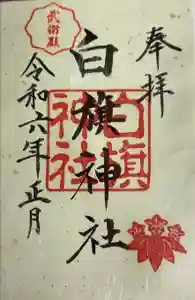 奉拝
白旗神社
白旗神社
令和六年正月
武衛殿